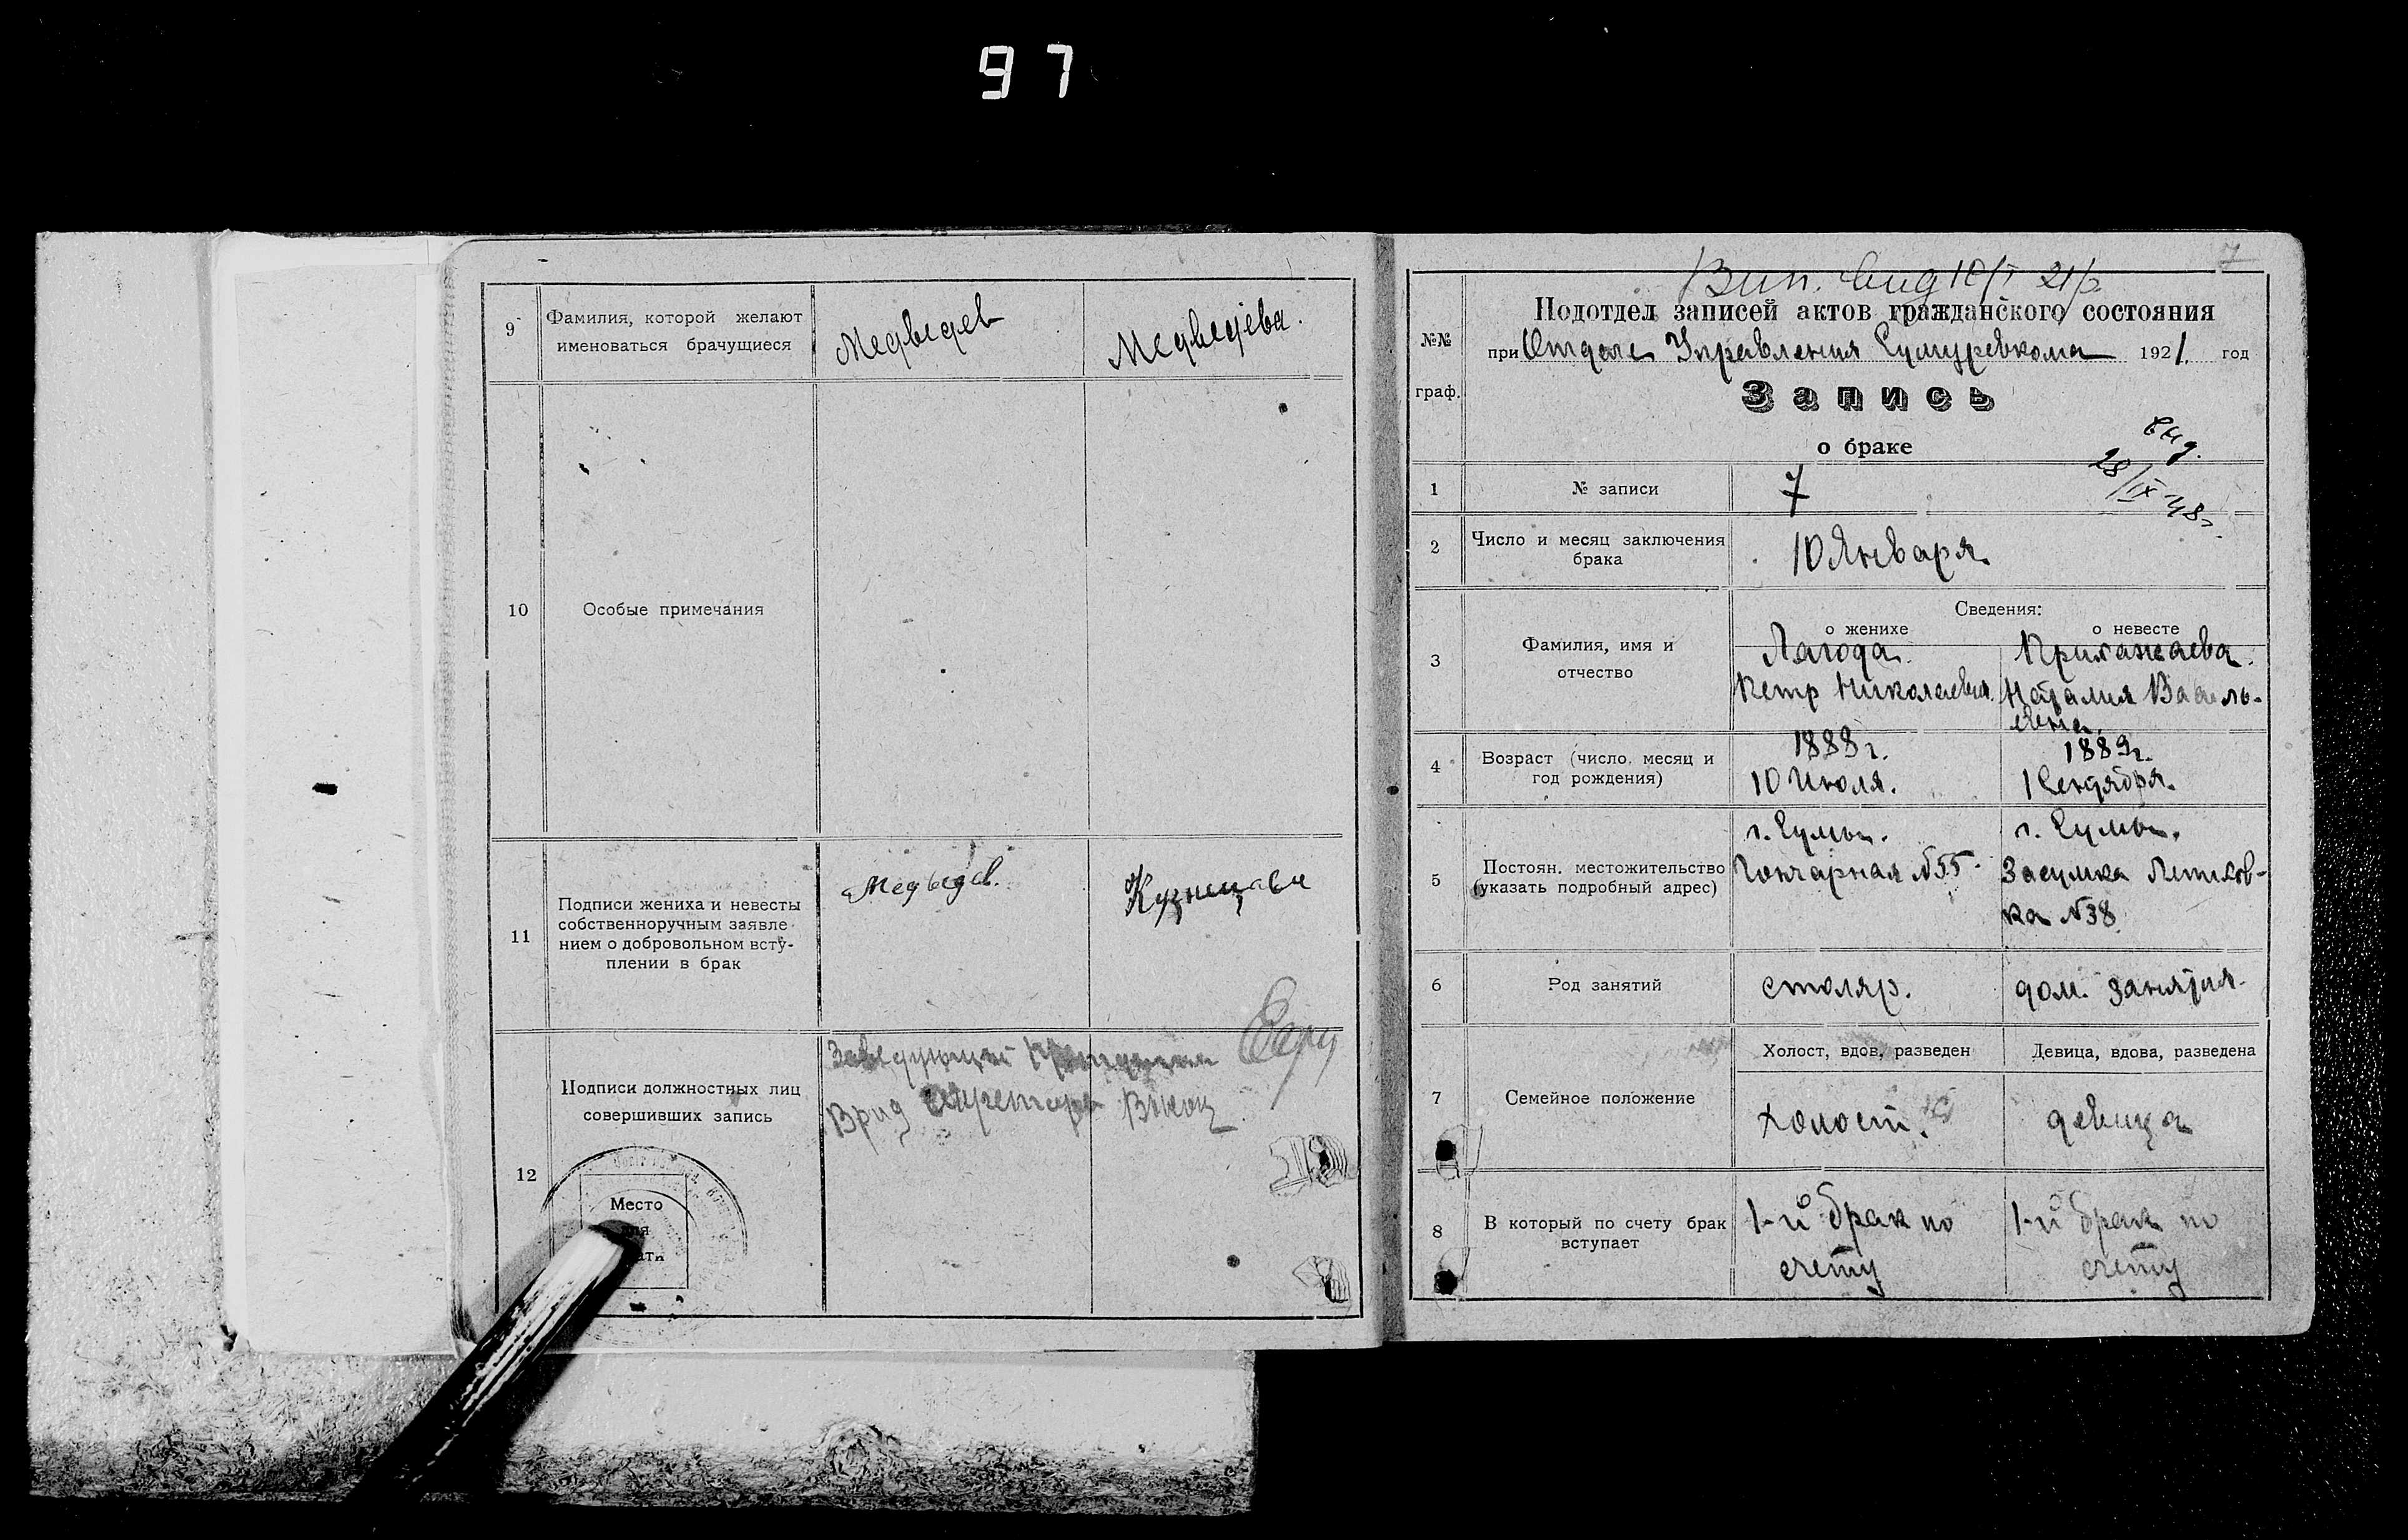 97
9
Фамилия, которой желают
именоваться брачущиеся
Медведев
Медведева.
10
Особые примечания
11
Подписи жениха и невесты
собственноручным заявле
нием о добровольном всту-
плении в брак
Медведев.
Кузнецова
12
Подписи должностных лиц
совершивших запись
Заведующий
Врид Секретаря
Место
7
Вип.
Подотдел записей актов гражданского состояния
при Отделе Управления Сумуревкома 1921. год
№№
граф.
Запись
о браке
выд.
28/IX-48г.
1
№ записи
7
2
Число и месяц заключения
брака
10 Января
3
Фамилия, имя и
отчество
Сведения:
о женихе
о невесте
Лагода.
Петр Николаевич.
Наталия Василь-
евна.
4
Возраст (число, месяц и
год рождения)
1888 г.
10 Июля.
1889 г.
1 Сентября.
5
Постоян. местожительство
(указать подробный адрес)
г. Сумы.
Гончарная №55
г. Сумы.
Засумка
ка №38
6
Род занятий
столяр.
дом. занятия.
7
Семейное положение
Холост, вдов, разведен
Девица, вдова, разведена
холост.
девица
8
В который по счету брак
вступает
1-й брак по
счету
1-й брак по
счету